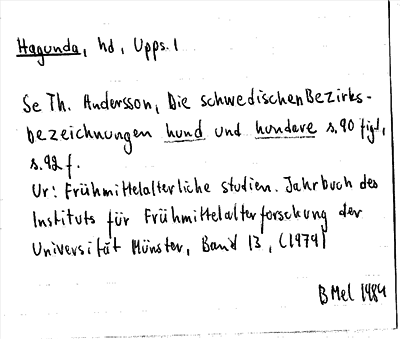 Hagunda, hd, Upps. l
Se Th. Andersson, Die schwedischen Bezirks-
bezeichnungen hund und hundare s. 90 figt,
s. 92 f.
Ur: Frühmittelalterliche Studien. Jahrbuch des
Instituts für Frühmittelalterforschung der
Universität Münster, Band 13, (1979)
B Mel 1984